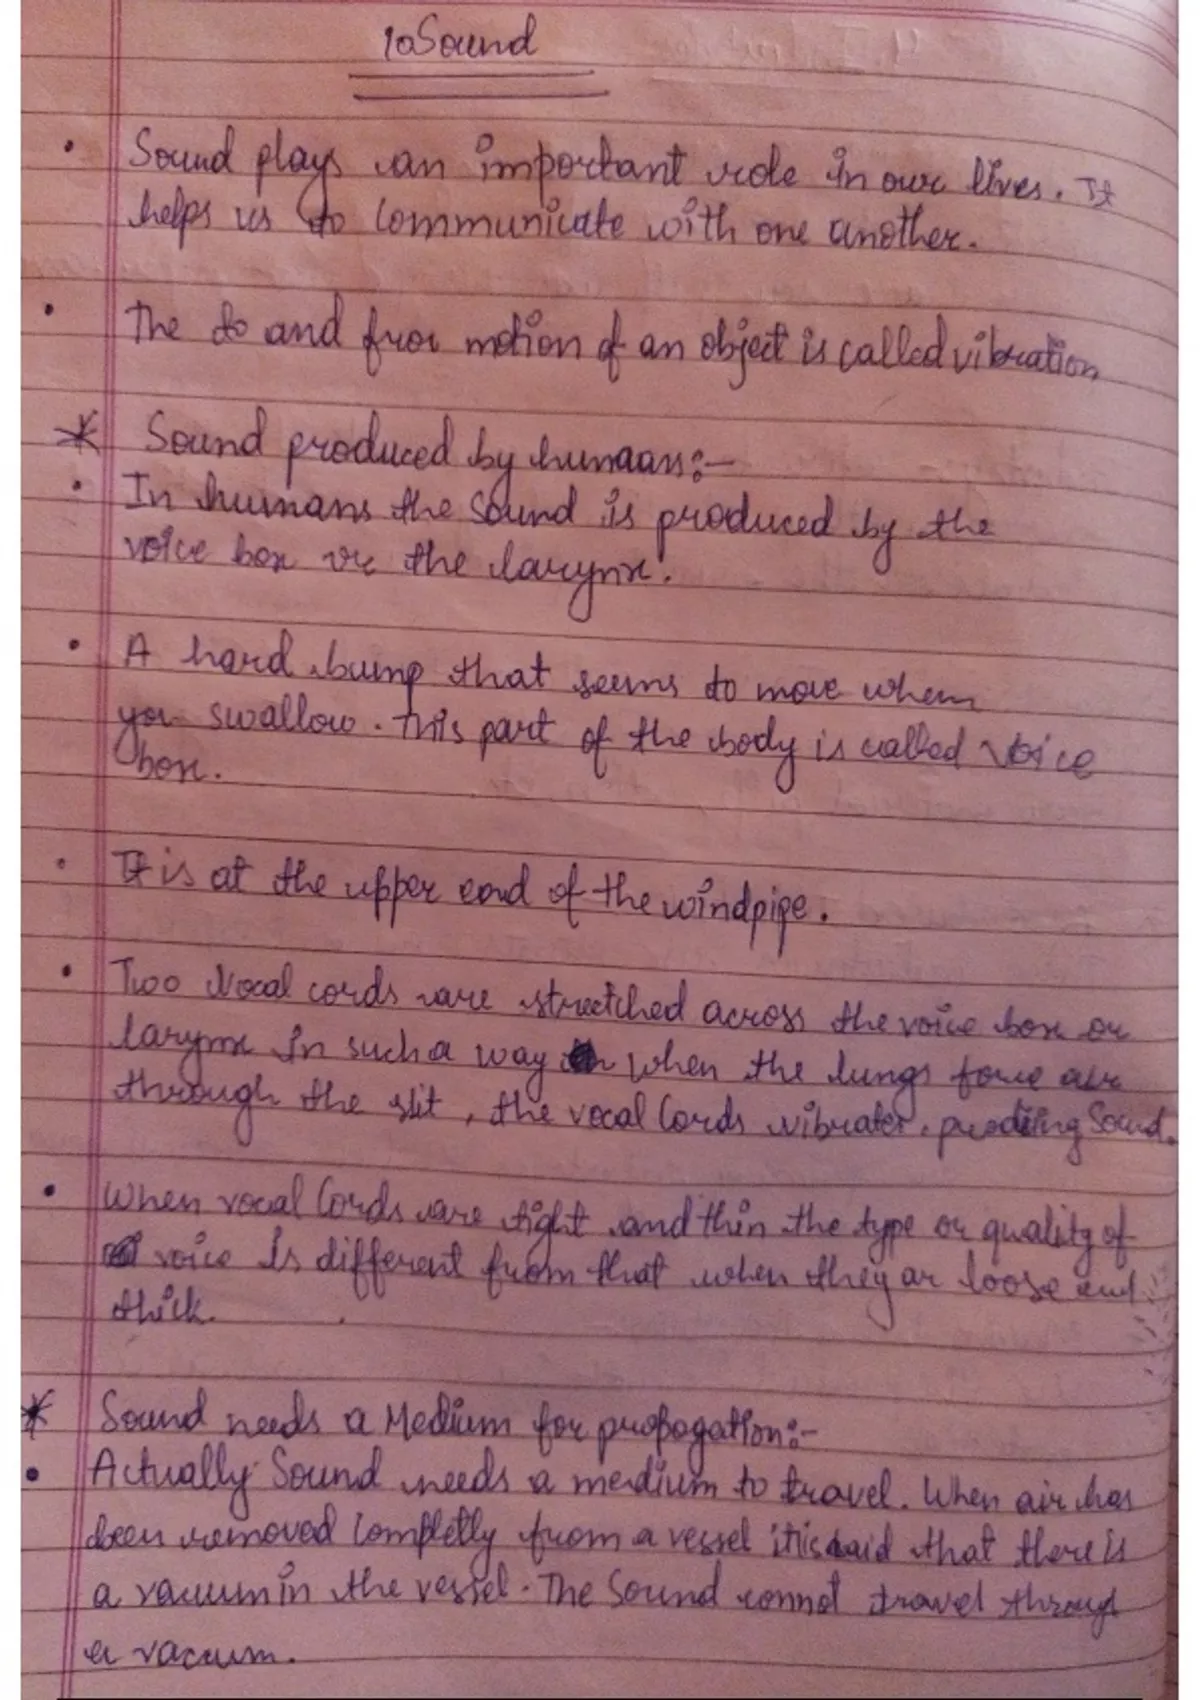 10 Sound
• Sound plays an important role in our lives. It
helps us to communicate with one another.
• The to and fro motion of an object is called vibration
* Sound produced by humaans:-
• In humans the sound is produced by the
voice box or the larynx.
• A hard bump that seems to move when
you swallow. This part of the body is called voice
box.
• It is at the upper end of the windpipe.
• Two Vocal cords are stretched across the voice box or
larynx in such a way when the lungs force air
through the slit, the vocal Cords vibrates, producing Sound.
• When vocal Cords are tight and thin the type or quality of
voice is different from that when they ar loose and
thick.
* Sound needs a Medium for propogation:-
• Actually Sound needs a medium to travel. When air has
been removed completly from a vessel it is said that there is
a vacuum in the vessel. The Sound connot travel through
a vacuum.